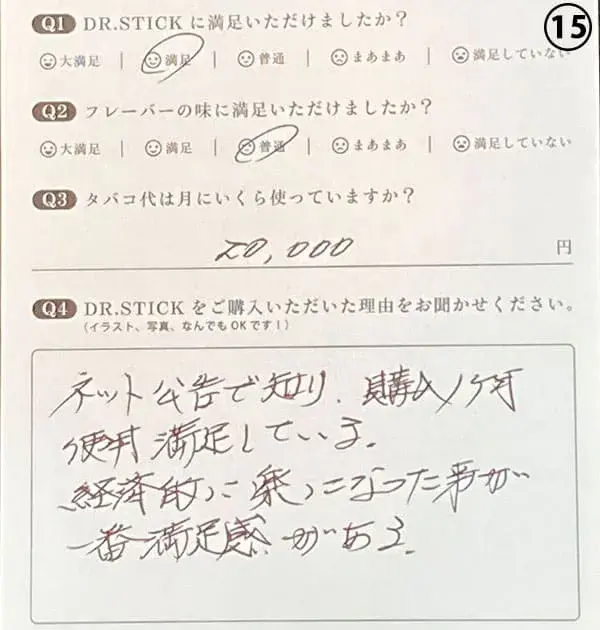 ⑮
Q1 DR.STICK に満足いただけましたか?
大満足 | 満足 | 普通 | まあまあ | 満足していない
Q2 フレーバーの味に満足いただけましたか?
大満足 | 満足 | 普通 | まあまあ | 満足していない
Q3 タバコ代は月にいくら使っていますか?
20,000 円
Q4 DR.STICK をご購入いただいた理由をお聞かせください。
(イラスト、写真、なんでもOKです!)
ネット公告で知り、購入1ヶ月
使用満足している。
経済的に楽になった事が
一番満足感がある。